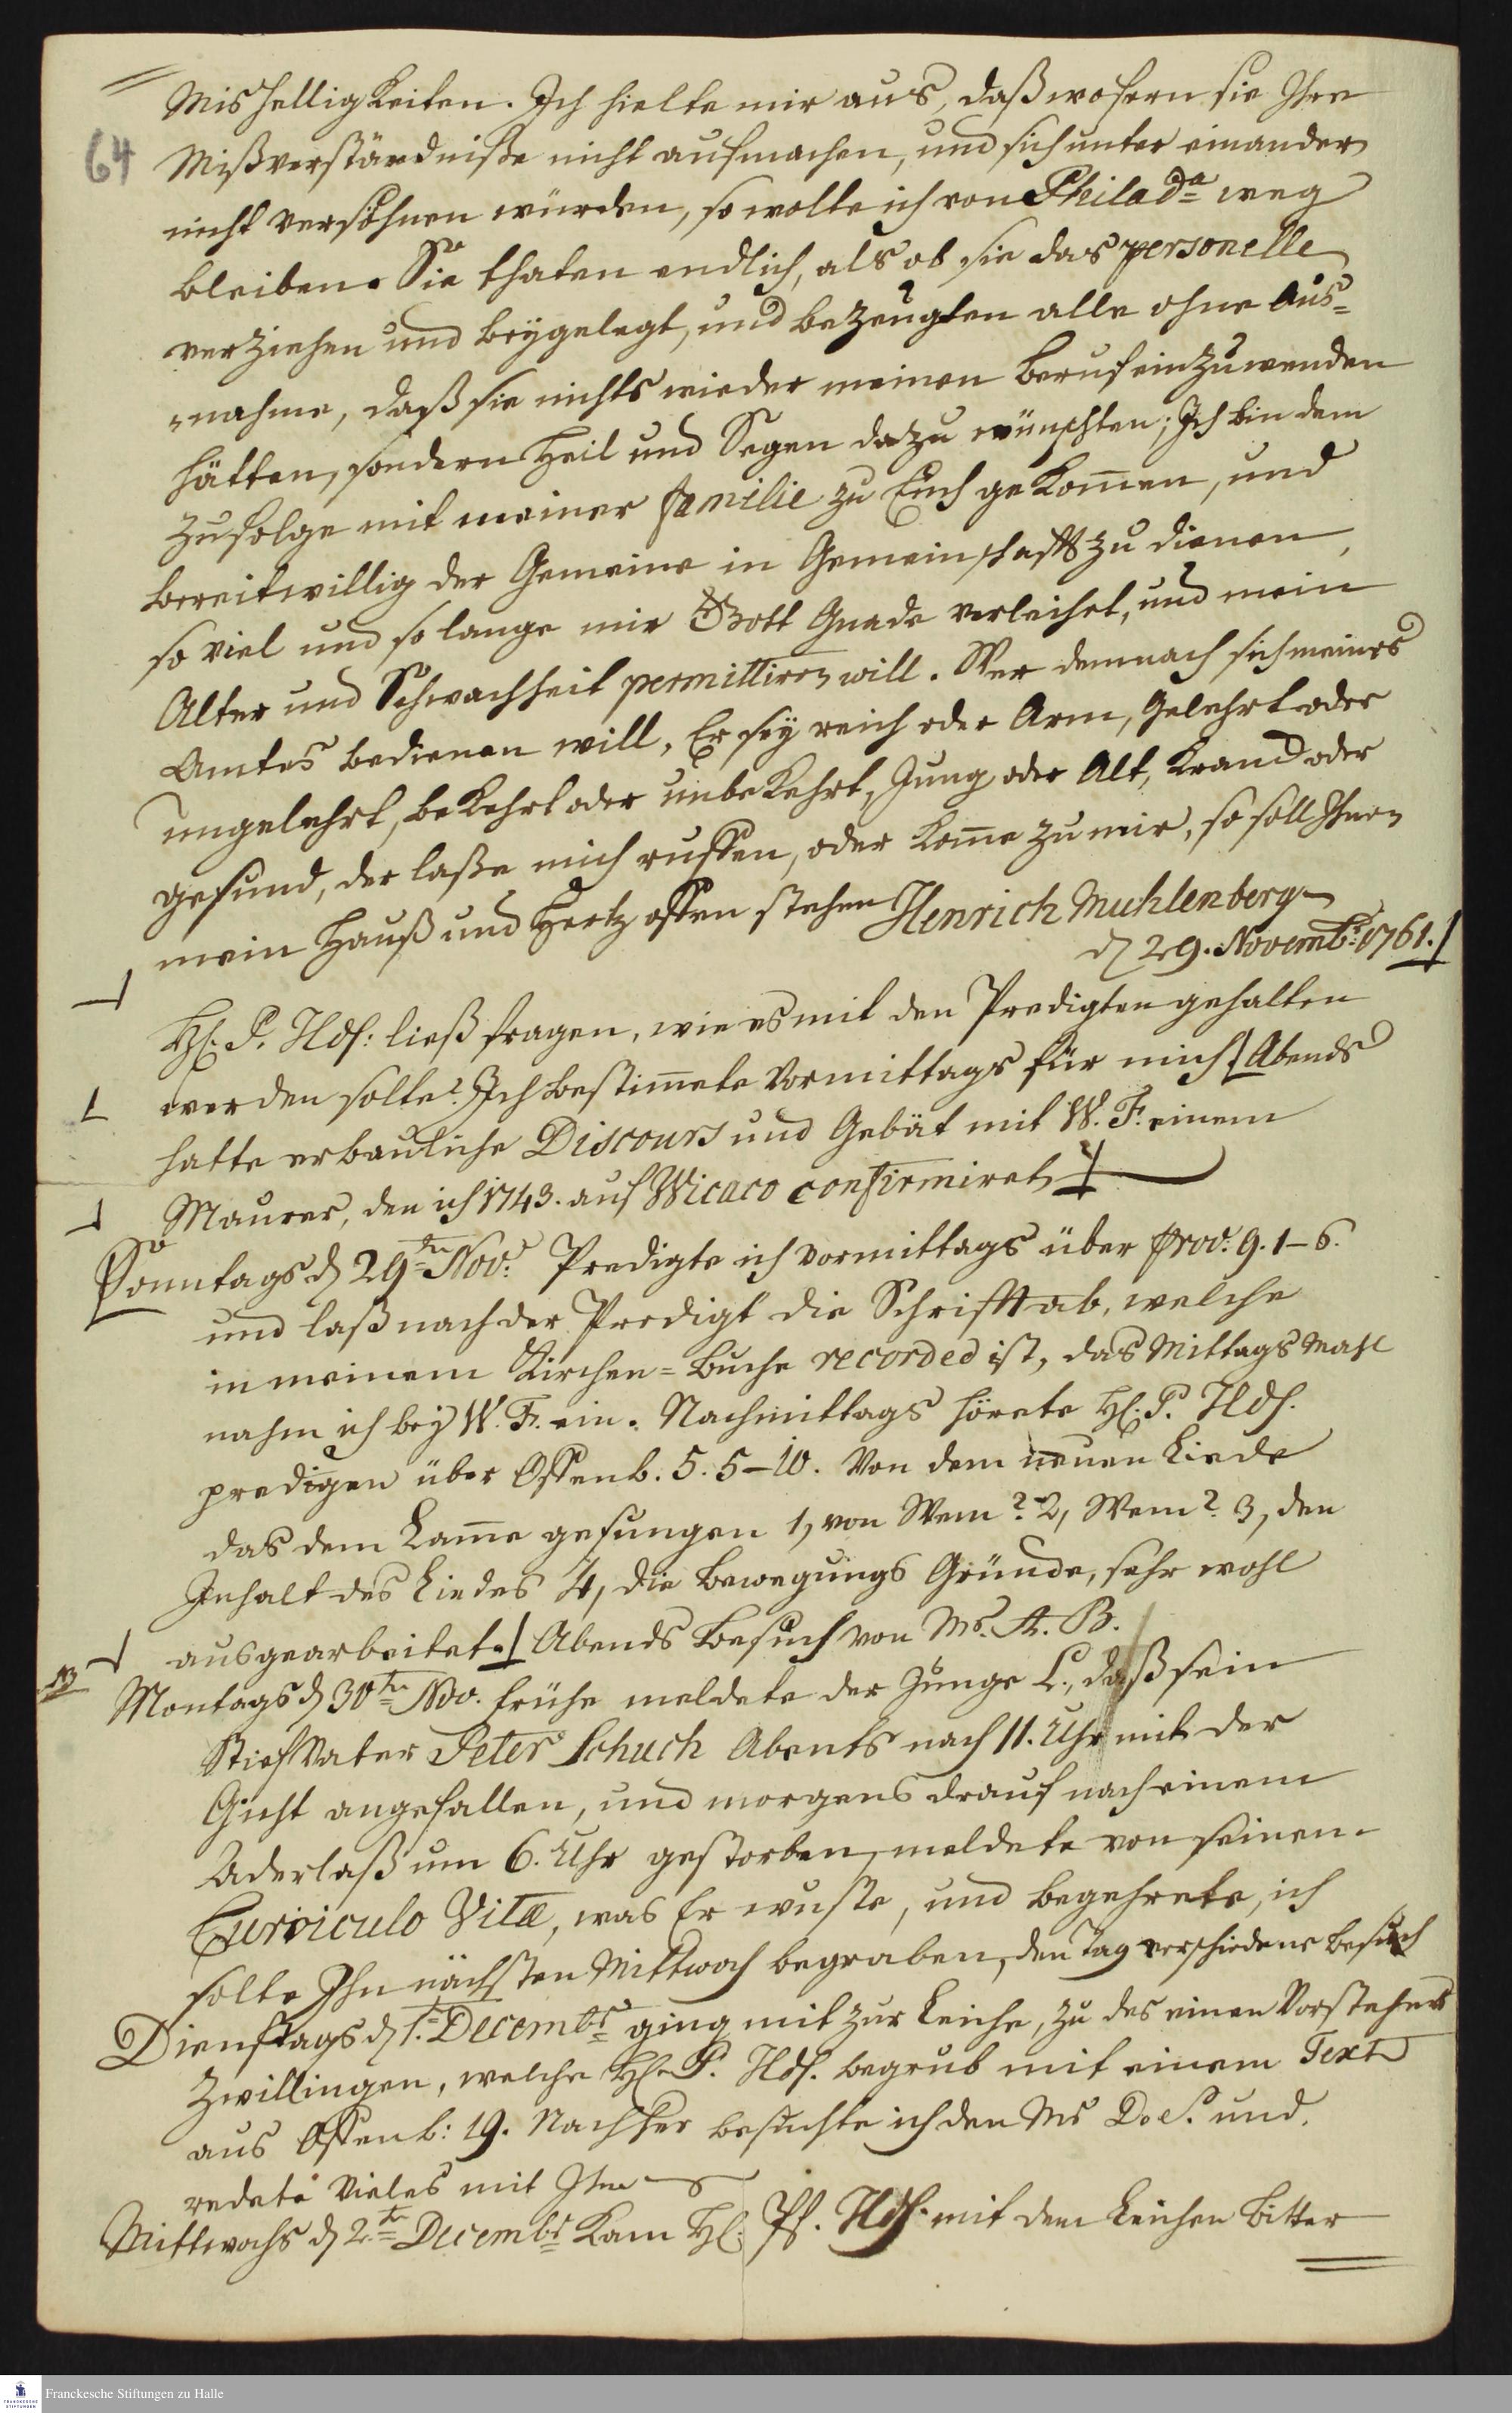 64
Mishelligkeiten. Ich hielte mir aus, daß wofern sie Ihre
Mißverständniße nicht ausmachen, und sich unter einander
nicht versöhnen würden, so wolte ich von Philada weg
bleiben. Sie thaten endlich, als ob sie das personelle
verziehen und beygelegt, und bezeugten alle ohne Aus=
=nahme, daß sie nichts wieder meinen Beruf einzuwenden
hätten, sondern Heil und Segen dazu wünschten; Ich bin dem
zufolge mit meiner familie zu Euch gekom̄en, und
bereitwillig der Gemeine in Gemeinschafft zu dienen,
so viel und so lange mir Gott Gnade verleihet, und mein
Alter und Schwachheit permittiren will. Wer demnach sich meines
Amtes bedienen will, Er sey reich oder Arm, Gelehrt oder
ungelehrt, bekehrt oder unbekehrt, Jung oder Alt, Kranck oder
gesund, der laße mich ruffen, oder kom̄e zu mir, so soll Ihnen
mein Hauß und Hertz offen stehen Henrich Muhlenberg
d 29. Novembr: 1761.
H. P. Hds: ließ fragen, wie es mit den Predigten gehalten
werden solte? Ich bestim̄ete Vormittags für mich Abends
hatte erbauliche Discours und Gebät mit W. F. einem
Maurer, den ich 1743. auf Wicaco confirmiret
Sonntags d 29ten Nov: Predigte ich Vormittags über Prov: 9. 1-6.
und laß nach der Predigt die Schrifft ab, welche
in meinem Kirchen=Buche recorded ist, das Mittags Mahl
nahm ich bey W. F. ein. Nachmittags hörete H. P. Hds.
predigen über Offenb. 5. 5-10. Von dem neuen Liede
das dem Lam̄e gesungen 1, von Wem? 2, Wem? 3, den
Inhalt des Liedes 4, die Bewegungs Gründe, sehr wohl
ausgearbeitet. Abends Besuch von Mr. A. B.
Montags d 30ten Nov. frühe meldete der Junge L., daß sein
Stief Vater Peter Schuch Abents nach 11. Uhr mit der
Gicht angefallen, und morgens drauf nach einem
Aderlaß um 6. Uhr gestorben, meldete von seinem
Curriculo Vitæ, was Er wuste, und begehrete, ich
solte Ihn nächsten Mittwoch begraben, den Tag verschiedene Besuch
Dienstags d 1. Decembr ging mit zur Leiche, zu des einen Vorstehers
Zwillingen, welche H. P. Hds. begrub mit einem Text
aus Offenb: 19. Nachher besuchte ich den Mr D. S. und
redete Vieles mit Ihm
Mittwochs d 2te Decembr kam H. Pf. Hds. mit dem Leichen Bitter
Franckesche Stiftungen zu Halle